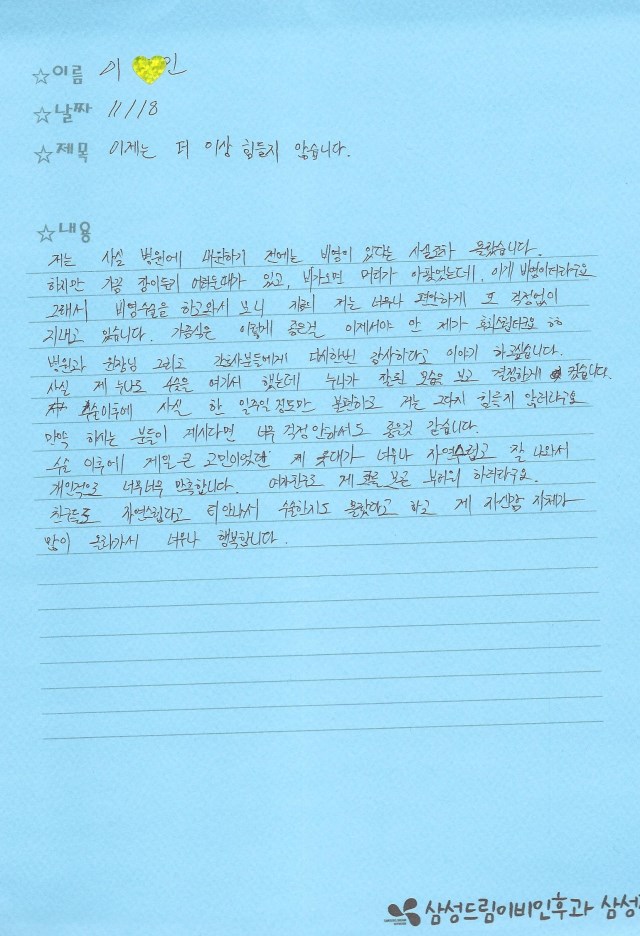 ☆이름 이 인
☆날짜 11/18
☆제목 이제는 더 이상 힘들지 않습니다.
☆내용
저는 사실 병원에 내원하기 전에는 비염이 있다는 사실조차 몰랐습니다.
하지만 가끔 잠이들기 어려울때가 있고, 비가오면 머리가 아팠었는데, 이게 비염이더라구요
그래서 비염수술을 하고와서 보니 저는 너무나 편안하게 또 걱정없이
지내고 있습니다. 가끔씩은 이렇게 좋은걸 이제서야 안 제가 후회스럽더라구요 ㅎㅎ
병원과 원장님 그리고 간호사분들에게 다시한번 감사하다고 이야기 하고싶습니다.
사실 제 누나도 수술을 여기서 했는데 누나가 잘된 모습을 보고 결정하게 됬습니다.
수술이후에 사실 한 일주일 정도만 불편하고 저는 그다지 힘들지 않더라구요
만약 하시는 분들이 계시다면 너무 걱정안하셔도 좋은것 같습니다.
수술 이후에 제일 큰 고민이었던 제 콧대가 너무나 자연스럽고 잘 나와서
개인적으로 너무너무 만족합니다. 여자친구도 제 코를 보곤 부러워 하더라구요.
친구들도 자연스럽다고 티안나서 수술한지도 몰랐다고 하고 제 자신감 자체가
많이 올라가서 너무나 행복합니다.
삼성드림이비인후과 삼성